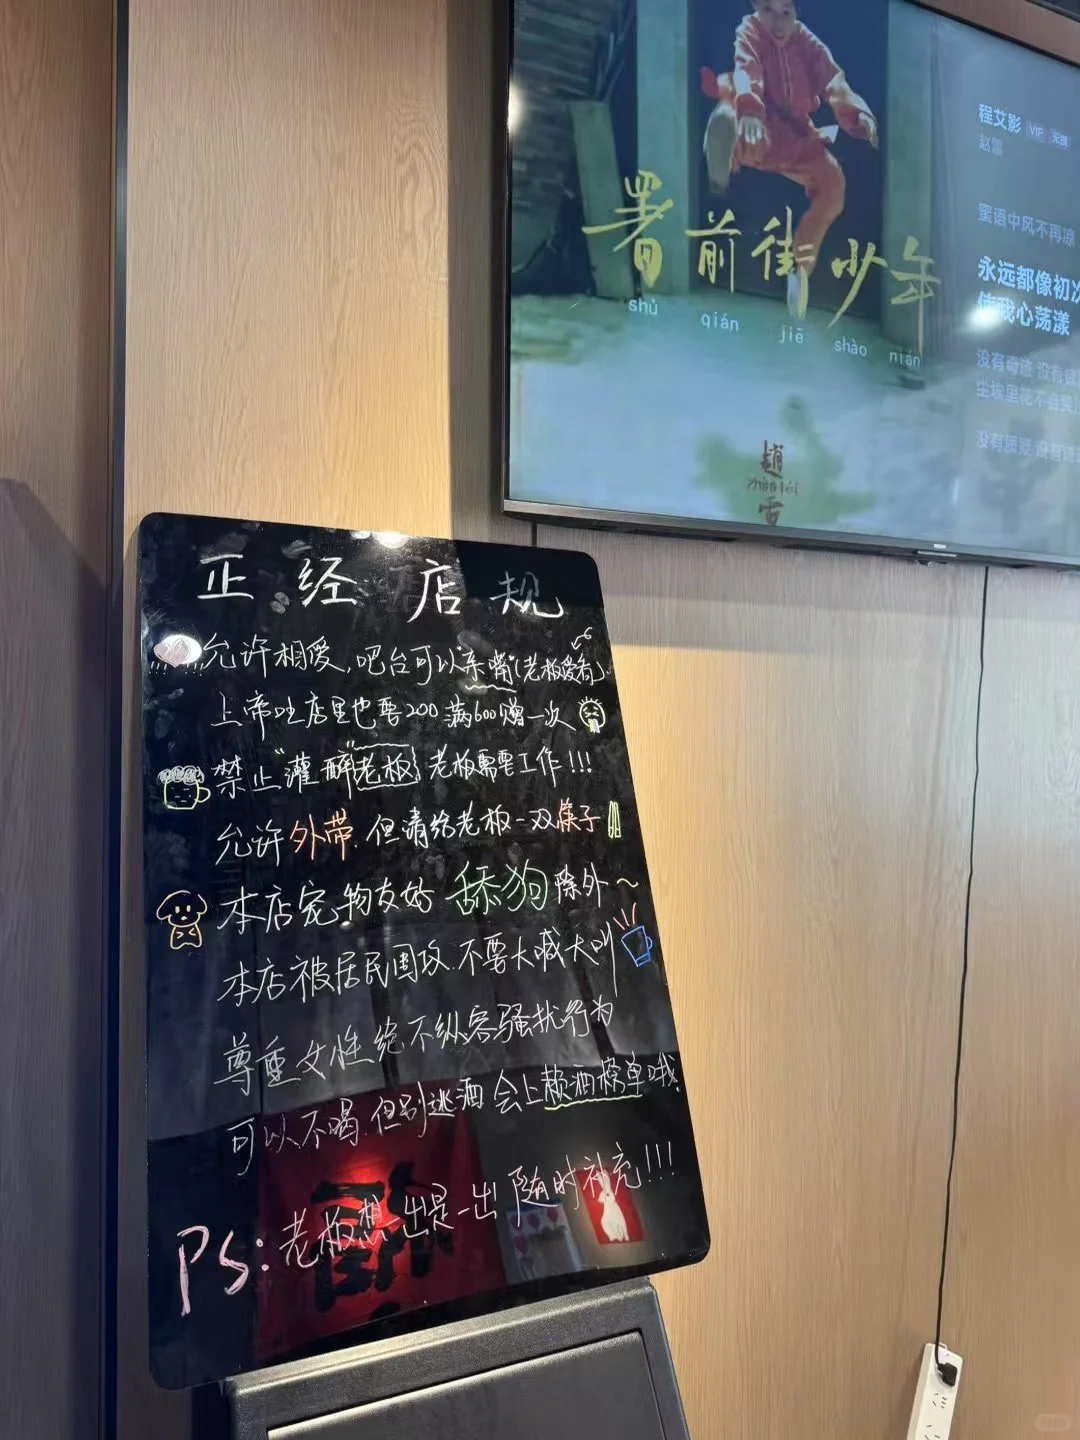 程艾影 VIP
赵雷
署前街少年
shǔ qián jiē shào nián
蜜语中风不再凉
永远都像初次
使我心荡漾
没有奇迹 没有
尘埃里花不会
没有质疑 没有
趙
zhào léi
雷
正经店规
允许相爱,吧台可以"亲嘴"(老板爱看)
上帝吐店里也要200 满600赠一次
禁止"灌醉"老板,老板需要工作!!!
允许外带.但请给老板一双筷子
本店宠物友好 舔狗除外~
本店被居民围攻.不要大喊大叫
尊重女性绝不纵容骚扰行为
可以不喝.但别逃酒 会上赖酒榜单哦
PS:老板想一出是一出 随时补充!!!